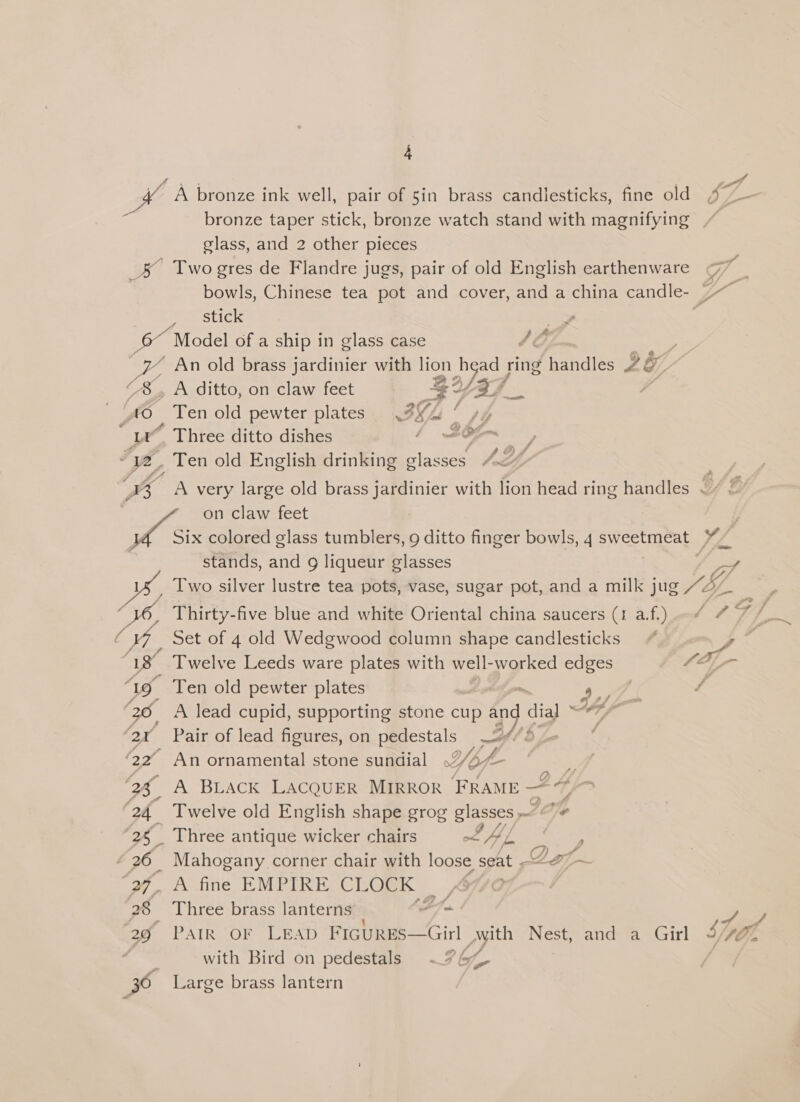 4
4 A bronze ink well, pair of 5in brass candlesticks, fine old
bronze taper stick, bronze watch stand with magnifying
glass, and 2 other pieces
5 Two gres de Flandre jugs, pair of old English earthenware
bowls, Chinese tea pot and cover, and a china candle-
stick
6 Model of a ship in glass case
7 An old brass jardinier with lion head ring handles
8 A ditto, on claw feet
10 Ten old pewter plates
11 Three ditto dishes
12 Ten old English drinking glasses
13 A very large old brass jardinier with lion head ring handles
on claw feet
14 Six colored glass tumblers, 9 ditto finger bowls, 4 sweetmeat
stands, and 9 liqueur glasses
15 Two silver lustre tea pots, vase, sugar pot, and a milk jug
16 Thirty-five blue and white Oriental china saucers (1 a.f.)
17 Set of 4 old Wedgwood column shape candlesticks
18 Twelve Leeds ware plates with well-worked edges
19 Ten old pewter plates
20 A lead cupid, supporting stone cup and dial
21 Pair of lead figures, on pedestals
22 An ornamental stone sundial
23 A BLACK LACQUER MIRROR FRAME
24 Twelve old English shape grog glasses
25 Three antique wicker chairs
26 Mahogany corner chair with loose seat
27 A fine EMPIRE CLOCK
28 Three brass lanterns
29 PAIR OF LEAD FIGURES—Girl with Nest, and a Girl
with Bird on pedestals
30 Large brass lantern